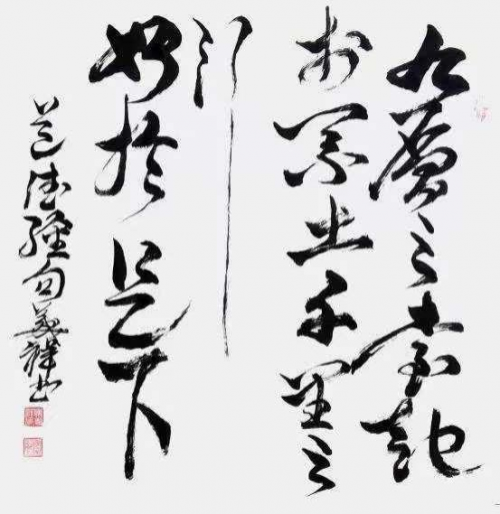 九層之臺起
於累土千里之
行
始於足下
道德經句祥書